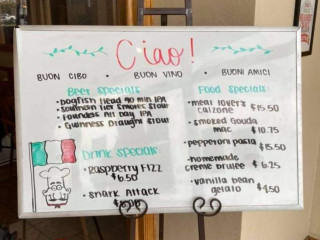 Ciao!
BUON CIBO • BUON VINO • BUONI AMICI
Beer Specials:
• Dogfish Head 90 min IPA
• Southern Tier S'mores Stout
• Founders All Day IPA
• Guinness Draught Stout
Drink Specials:
• Raspberry Fizz
$6.50
• Shark Attack
Food Specials:
• meal lover's
calzone $15.50
• smoked gouda
mac $10.75
• pepperoni pasta
$15.50
• homemade
creme brulee $6.25
• vanilla bean
gelato $4.50